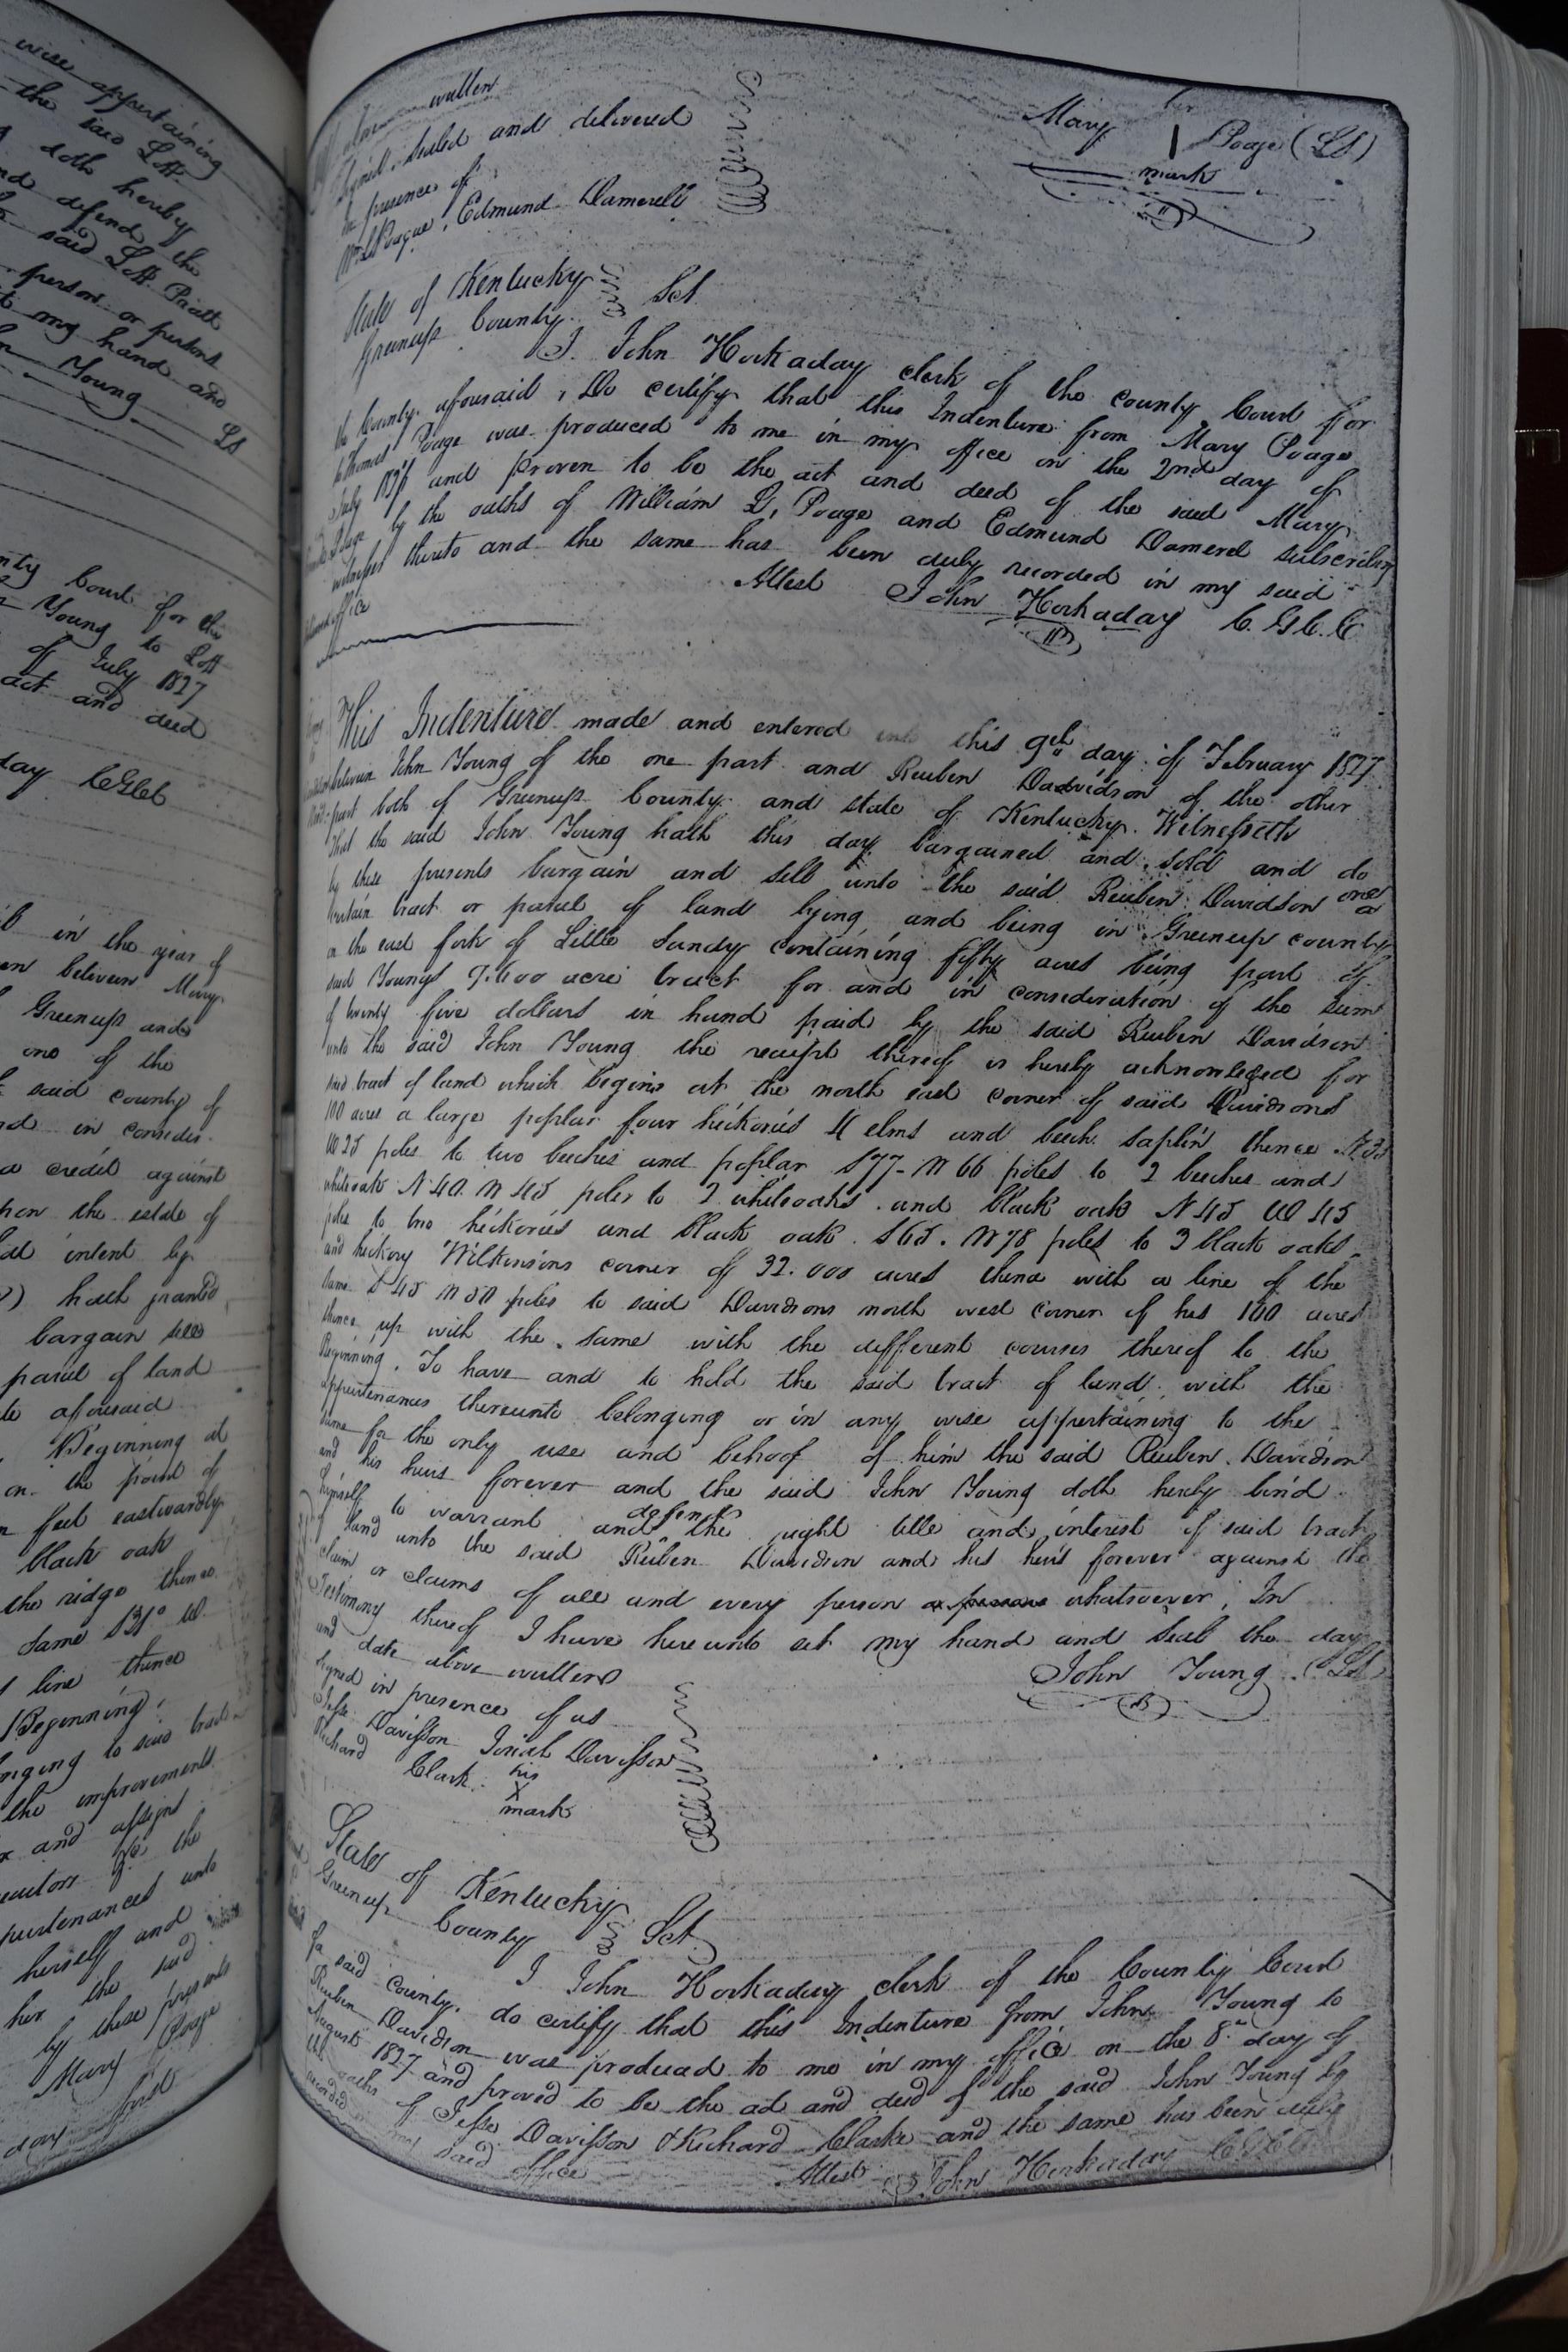 wise appertaining
the said Lott
doth hereby
and defend the
said Lott Pratt
person or persons
my hand and
Young LS
County Court for this
Young to Lott
of July 1827
act and deed
day CGCC
in the year of
between Mary
Greenup and
one of the
said county of
in conside-
a credit against
upon the estate of
intent by
hath granted
bargain sell
parcel of land
aforesaid
Beginning at
on the point of
feet eastwardly
black oak
the ridge thence
same S31° W.
line thence
Beginning
belonging to said tract
the improvements
and assigns
the
appurtenances unto
herself and
her the said
by these presents
Mary Poage
day first
above written
Signed, sealed and delivered
In presence of
Wm L Poague, Edmund Damerell
her
Mary | Poage (LS)
mark
State of Kentucky
Greenup County. Sct
I John Hockaday clerk of the county Court for
the County aforesaid, Do certify that this Indenture from Mary Poage
to Thomas Poage was produced to me in my office on the 2nd day of
July 1827 and proven to be the act and deed of the said Mary
Poage by the oaths of William L. Poage and Edmund Damerel subscribing
witnesses thereto and the same has been duly recorded in my said
office
Attest John Hockaday C. G. C. C
This Indenture made and entered into this 9th day of February 1827
between John Young of the one part and Reuben Dadvidson of the other
part both of Greenup County and state of Kentucky. Witnesseth
That the said John Young hath this day bargained and sold and do
by these presents bargain and sell unto the said Reuben Davidson one
certain tract or parcel of land lying and being in Greenup county
on the east fork of Little Sandy containing fifty acres being part of
said Youngs 9.400 acre tract for and in consideration of the sum
of twenty five dollars in hand paid by the said Reuben Davidson
unto the said John Young the receipt thereof is hereby acknowleged for
said tract of land which begins at the north east corner of said Davidsons
100 acres a large poplar four hickories 4 elms and beech saplin thence
W 25 poles to two beeches and poplar S77- W 66 poles to 2 beeches and
whiteoak N 40. W 45 poles to 2 whiteoaks. and black oak N 45 W 45
poles to two hickories and black oak. S65. W 78 poles to 3 black oaks
and hickory Wilkinsons corner of 32.000 acres thence with a line of the
same S 45 W 50 poles to said Davidsons north west corner of his 100 acres
thence up with the same with the different courses thereof to the
Beginning. To have and to hold the said tract of land, with the
appurtenances thereunto belonging or in any wise appertaining to the
same for the only use and behoof of him the said Reuben Davidson
and his heirs forever and the said John Young doth hereby bind
himself to warrant and defend the right title and interest of said tract
of land unto the said Reuben Davidson and his heirs forever against the
claim or claims of all and every person or persons whatsoever; In
Testimony thereof I have hereunto set my hand and seal the day
and date above written
John Young (LS)
Signed in presence of us
Jesse Davisson Josiah Davisson
Richard Clark his
X
mark
State of Kentucky
Greenup County Sct.
I John Hockaday clerk of the County Court
for said county. do certify that this Indenture from John Young to
Reuben Davidson was produced to me in my office on the 8th day of
August 1827 and proved to be the act and deed of the said John Young by
the oaths of Jesse Davisson & Richard Clarke and the same has been duly
recorded in my said office
Attest John Hockaday CGCC